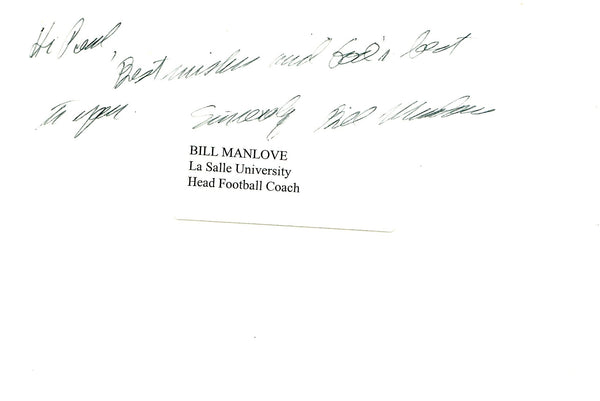 Hi Paul,
Best wishes and God's best
to you. Sincerely Bill Manlove
BILL MANLOVE
La Salle University
Head Football Coach